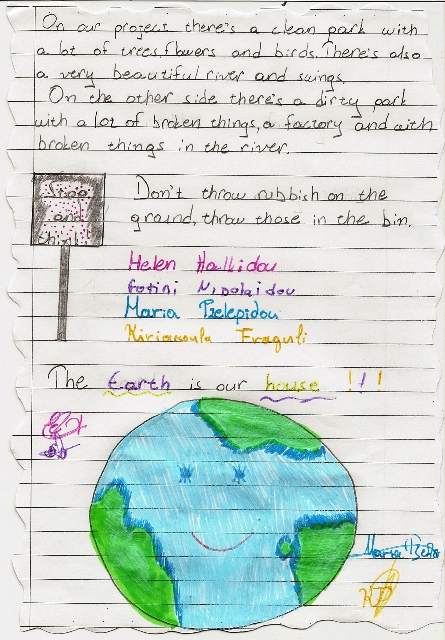 On our project there's a clean park with
a lot of trees, flowers and birds. There's also
a very beautiful river and swings.
On the other side there's a dirty park
with a lot of broken things, a factory and with
broken things in the river.
Stop
and
think
Don't throw rubbish on the
ground, throw those in the bin.
Helen Hallidou
Fotini Nikolaidou
Maria Pzelepidou
Kiriakoula Fraguli
The Earth is our house !!!
Maria